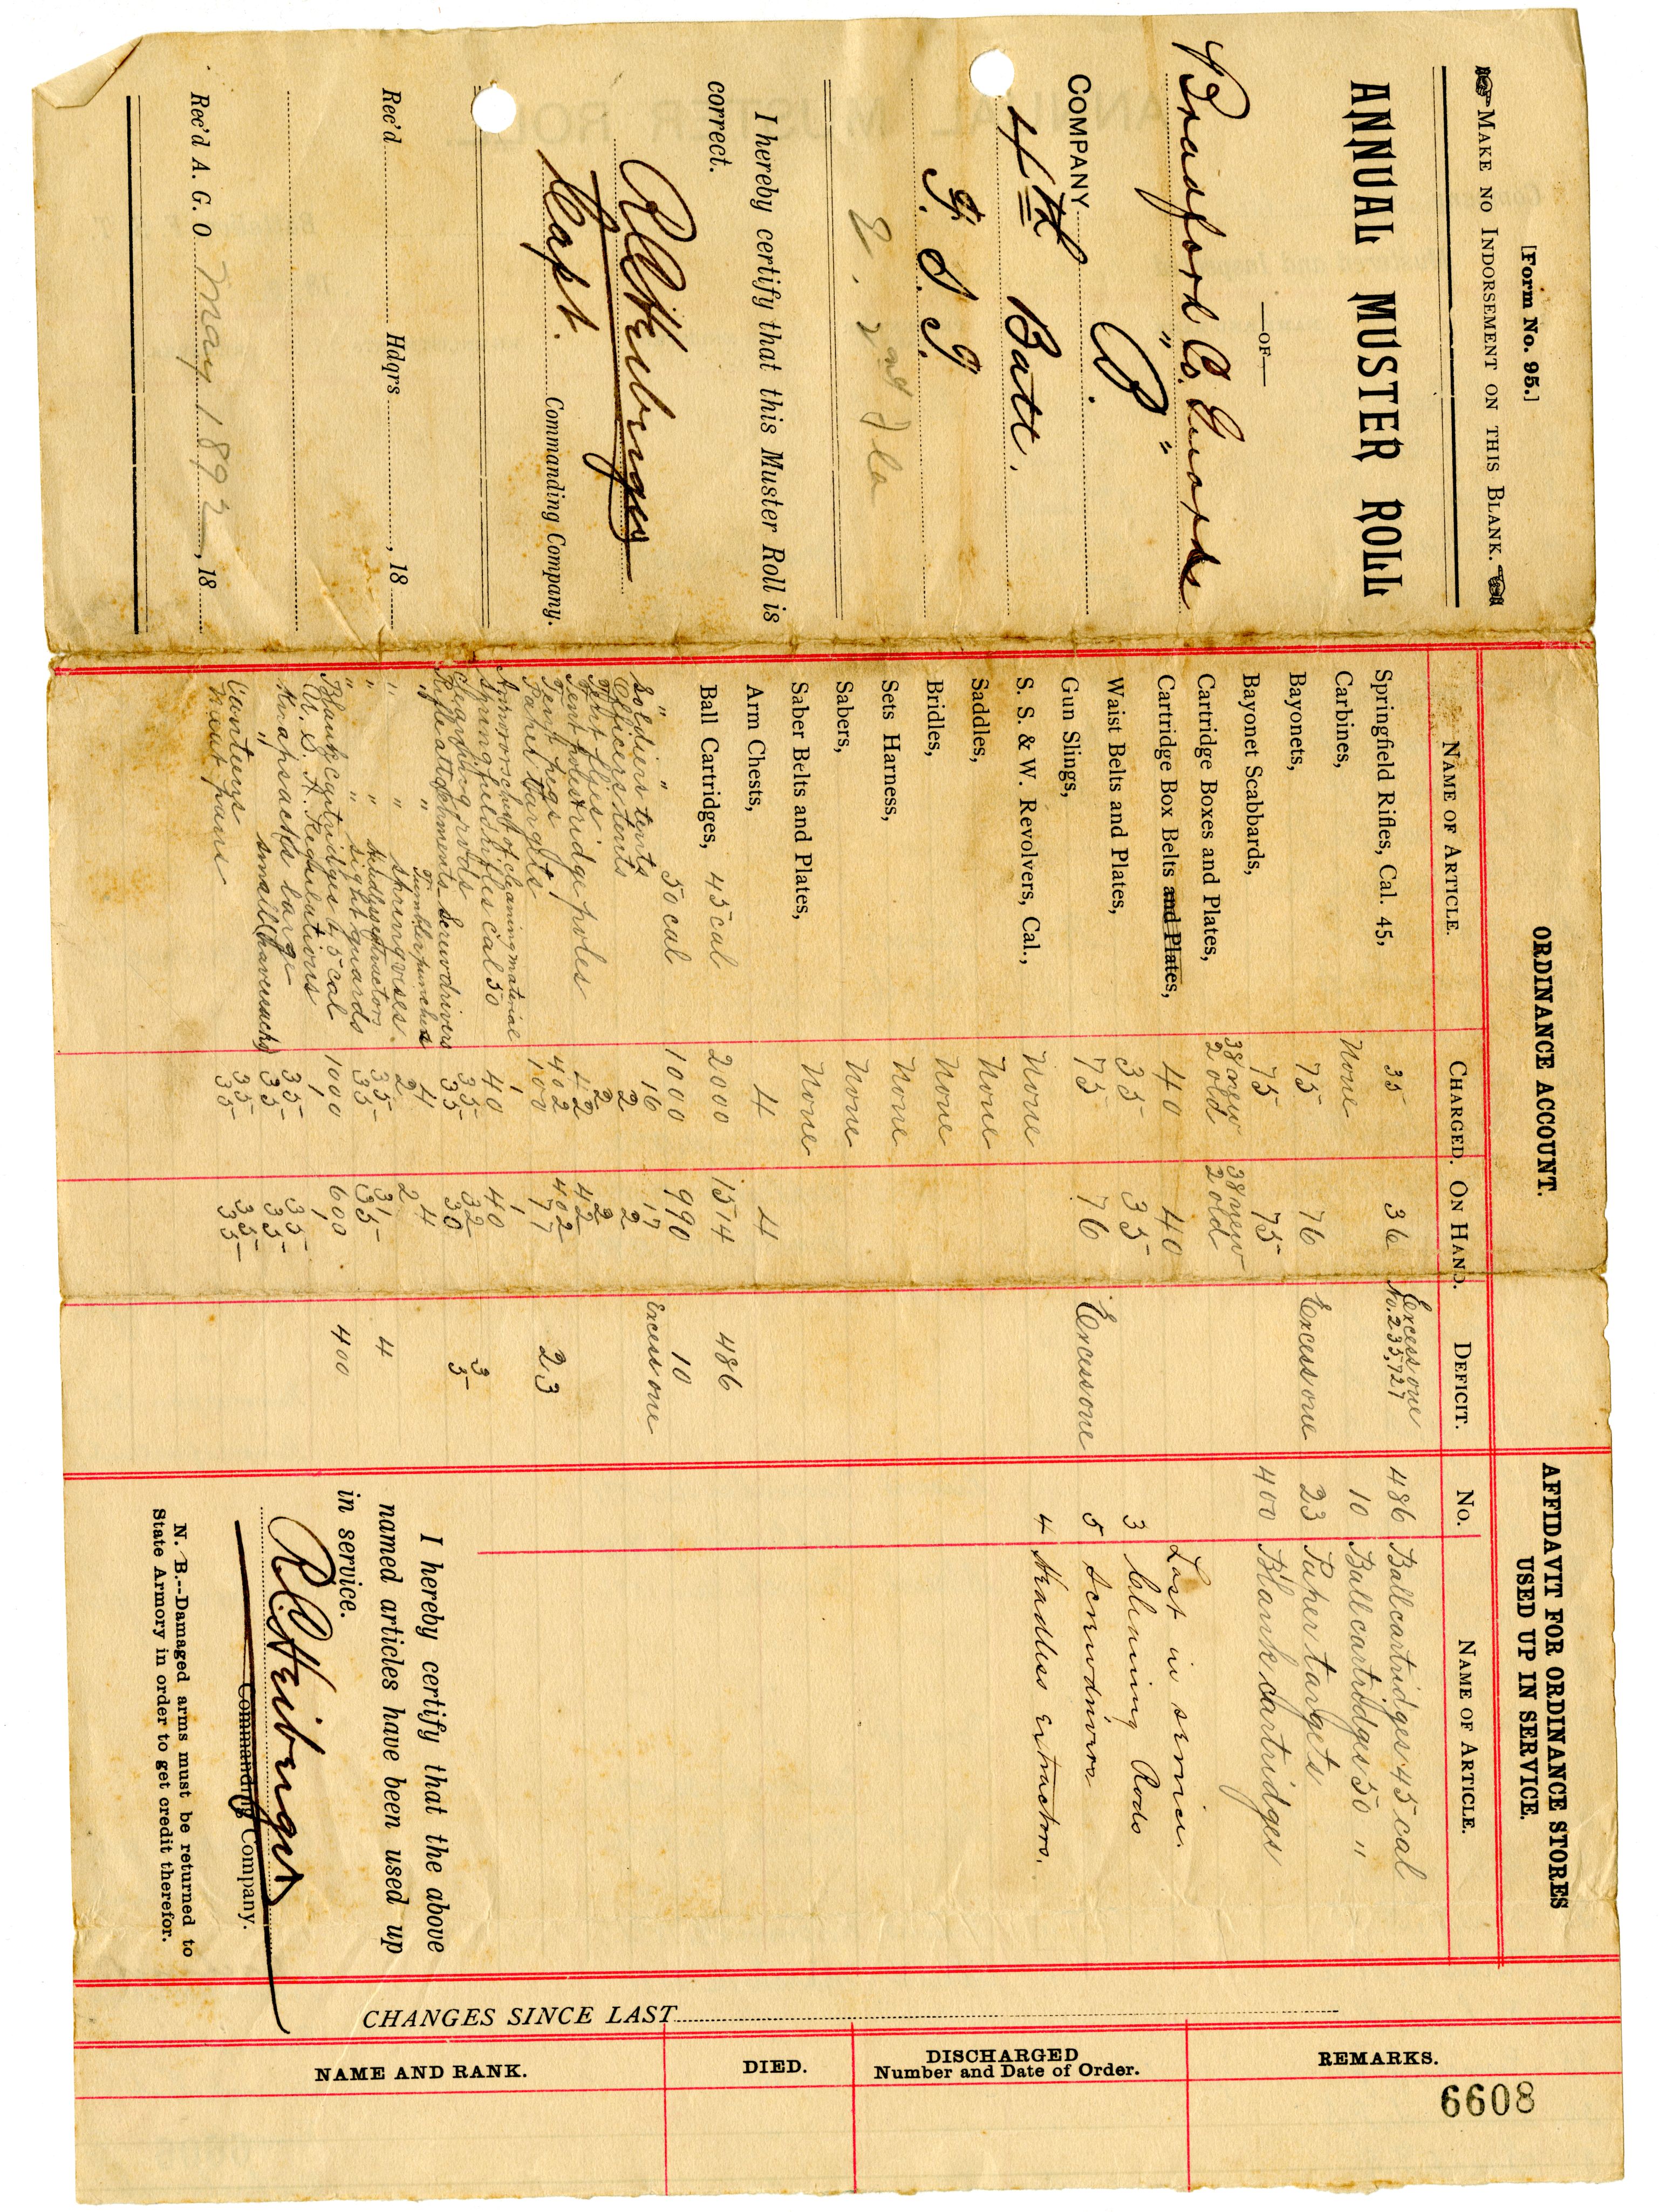 [Form No. 95.]
MAKE NO INDORSEMENT ON THIS BLANK.
ANNUAL MUSTER ROLL
—OF—
Bradford Co. Guards
" B. "
COMPANY
4th Batt.
F. S. T.
2nd Fla
I hereby certify that this Muster Roll is
correct.
Capt.
Commanding Company.
Rec'd Hdqrs , 18
Rec'd A. G. O. May 1892 , 18
ORDINANCE ACCOUNT.
NAME OF ARTICLE. CHARGED. ON HAND. DEFICIT.
Springfield Rifles, Cal. 45, 35 36 Excess one No. 235,727
Carbines, None
Bayonets, 75 76 Excess one
Bayonet Scabbards, 75 75
Cartridge Boxes and Plates, 38 new 2 old 38 new 2 old
Cartridge Box Belts and Plates, 40 40
Waist Belts and Plates, 35 35
Gun Slings, 75 76 Excess one
S. S. & W. Revolvers, Cal., None
Saddles, None
Bridles, None
Sets Harness, None
Sabers, None
Saber Belts and Plates, None
Arm Chests, 4 4
Ball Cartridges, 45 cal 2000 1514 486
" " 50 cal 1000 990 10
Soldiers tents 16 17 Excess one
Officers tents 2 2
Tent flies 2 2
Tent poles & ridge poles 42 42
Tent pegs 402 402
Paper targets 100 77 23
Armorers chest of cleaning material 1 1
Springfield rifles cal 50 40 40
Cleaning rods 35 32 3
Rifle attachments Screwdrivers 35 30 5
" " Tumbler punches 4 4
" " Spring vises 2 2
" " Headless extractors 35 31 4
" " Sight guards 35 35
Blank cartridges 45 cal 1000 600 400
U. S. A. Regulations 1 1
Knapsacks large 35 35
" small (haversacks) 35 35
Canteens 35 35
Meat pans 35 35
AFFIDAVIT FOR ORDINANCE STORES
USED UP IN SERVICE.
No. NAME OF ARTICLE.
486 Ball cartridges 45 cal
10 Ball cartridges 50 "
23 Paper targets
400 Blank cartridges
Lost in service.
3 Cleaning Rods
5 Screwdrivers
4 Headless Extractors.
I hereby certify that the above
named articles have been used up
in service.
Commanding Company.
N. B.--Damaged arms must be returned to
State Armory in order to get credit therefor.
CHANGES SINCE LAST
NAME AND RANK. DIED. DISCHARGED Number and Date of Order. REMARKS.
6608